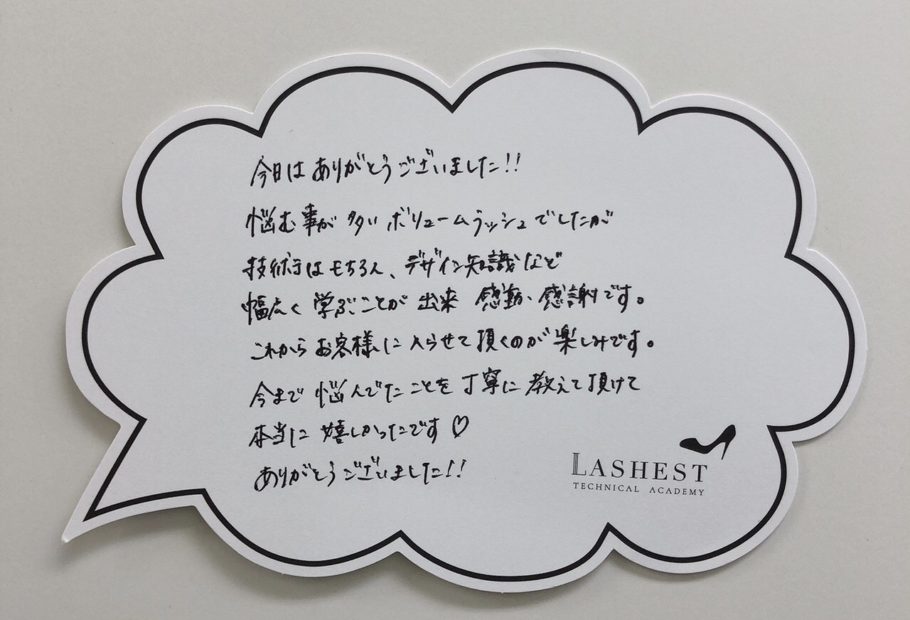 今日は ありがとうございました!!
悩む事が 多い ボリュームラッシュ でしたが
技術はもちろん、デザイン知識など
幅広く 学ぶことが 出来 感動・感謝です。
これから お客様に 入らせて 頂くのが 楽しみです。
今まで 悩んでた ことを 丁寧に 教えて 頂けて
本当に 嬉しかったです♡
ありがとうございました!!
LASHEST
TECHNICAL ACADEMY